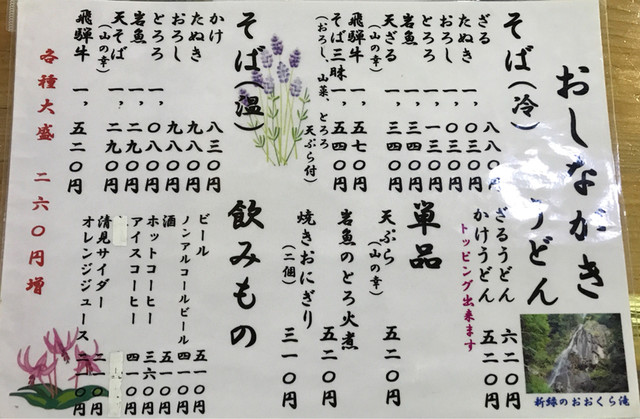 おしながき
そば(冷)
ざる 八八〇円
たぬき 一,〇三〇円
おろし 一,〇三〇円
とろろ 一,一三〇円
岩魚 一,三四〇円
天ざる(山の幸) 一,三四〇円
そば三昧 一,五四〇円
(おろし、山菜、とろろ 天ぷら付)
飛騨牛 一,五七〇円
そば(温)
かけ 八三〇円
たぬき 九八〇円
おろし 九八〇円
とろろ 一,〇八〇円
岩魚 一,二九〇円
天そば(山の幸) 一,二九〇円
飛騨牛 一,五二〇円
各種大盛 二六〇円増
うどん
ざるうどん 六二〇円
かけうどん 五二〇円
トッピング出来ます
単品
天ぷら(山の幸) 五二〇円
岩魚のとろ火煮 五二〇円
焼きおにぎり(二個) 三一〇円
飲みもの
ビール 五一〇円
ノンアルコールビール 四一〇円
酒 五一〇円
ホットコーヒー 三六〇円
アイスコーヒー 四一〇円
清見サイダー
オレンジジュース 二一〇円
新緑のおおくら滝